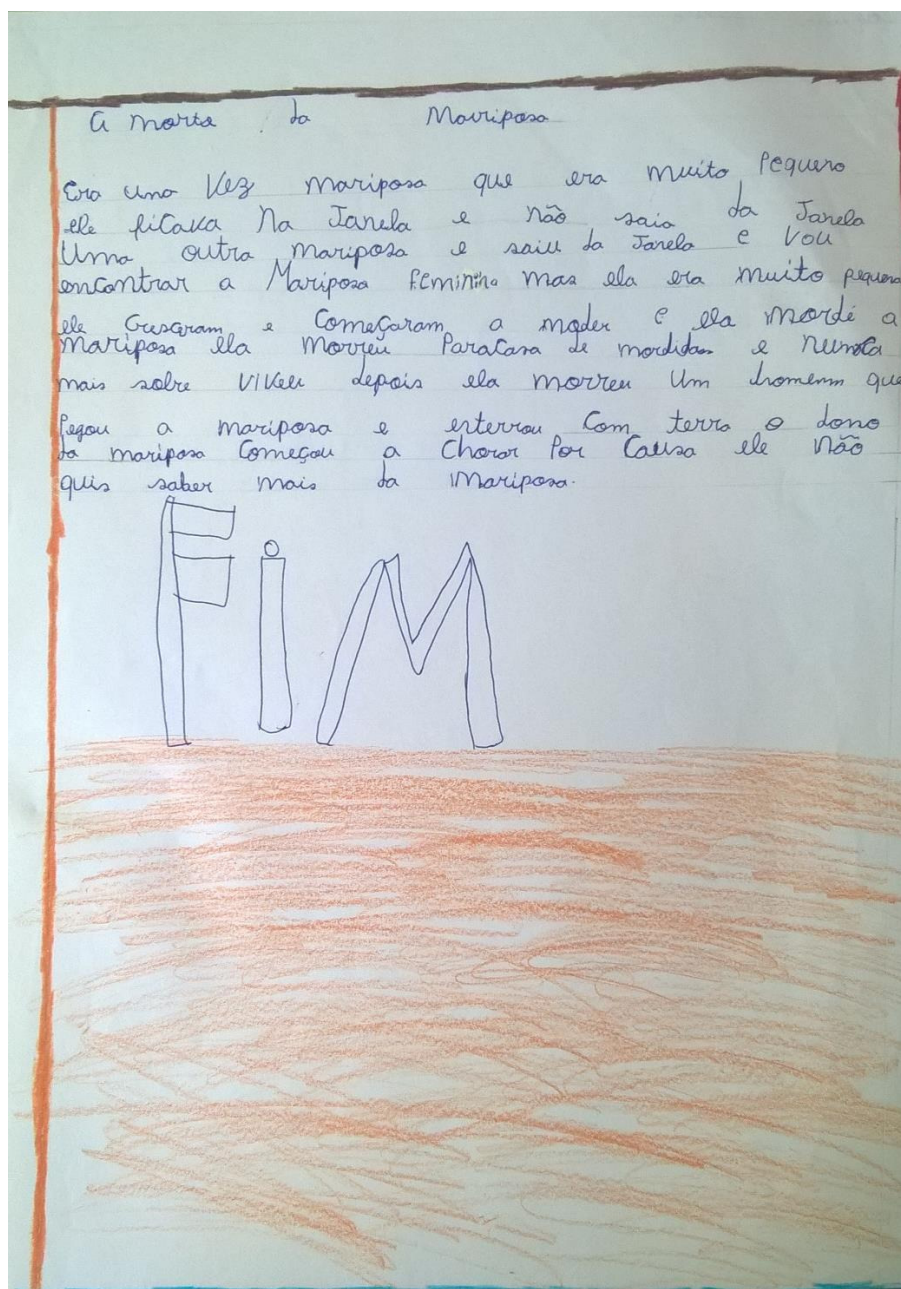 A morte da Mariposa
Era uma Vez mariposa que era muito Pequeno
ele ficava Na Janela e não saia da Janela
Uma outra mariposa e saiu da Janela e Vou
encontrar a Mariposa Feminina mas ela era muito pequena
ele Cresceram e Começaram a moder e ela mordé a
mariposa ela morreu de mordidas e nunca
mais sobre Viveu depois ela morreu Um homem que
Pegou a mariposa e enterrou Com terra o dono
da mariposa Começou a Chorar Por Causa ele Não
quis saber mais da Mariposa.
FiM